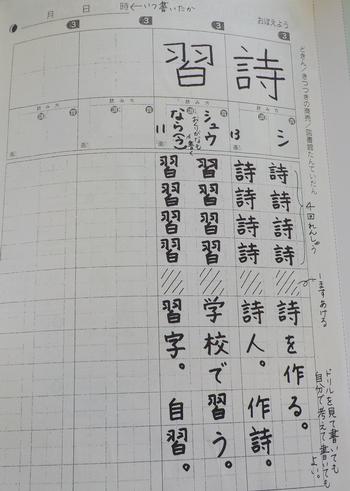 月 日 時←いつ書いたか
おぼえよう
3
3
3
3
どきん/きつつきの商売/図書館たんていだん
詩
習
読み方
音 シ
訓
13
画
読み方
音 シュウ
訓 なら(う)
おくりがなも書く
11
画
読み方
音
訓
画
読み方
音
訓
画
詩詩詩詩
詩詩詩詩
習習習習
習習習習
4回れんしゅう
1ますあける
詩を作る。
詩人。作詩。
学校で習う。
習字。自習。
ドリルを見て書いても
自分で考えて書いても
よい。